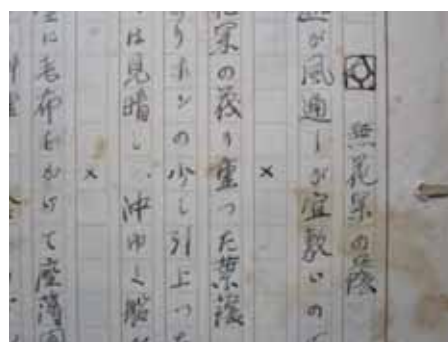 無花果の蔭
が風通しが宜敷いの
×
花果の茂り重つた葉蔭
ホンの少し引上つた
は見晴し、沖ゆく船
×
に毛布をかけて座蒲団